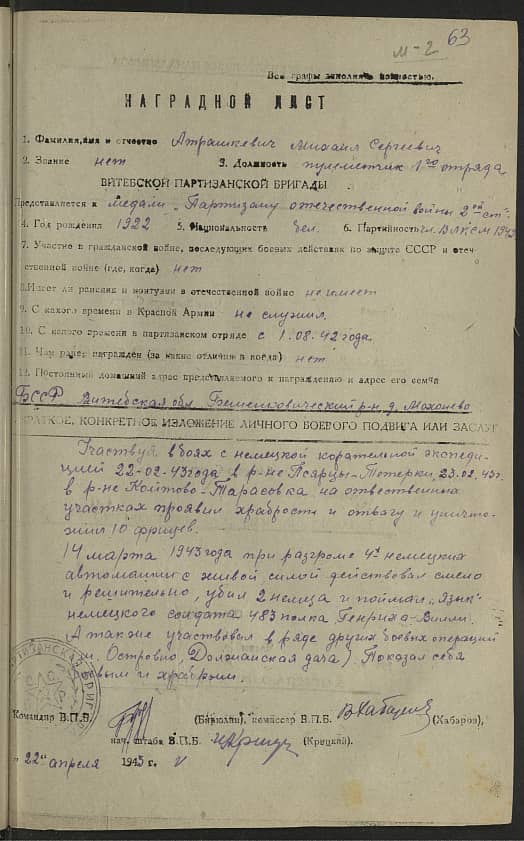 м-2 63
Все графы заполнять полностью.
НАГРАДНОЙ ЛИСТ
1. Фамилия, имя и отчество Атрашкевич Михаил Сергеевич
2. Звание нет 3. Должность пулеметчик 1го отряда
ВИТЕБСКОЙ ПАРТИЗАНСКОЙ БРИГАДЫ
Представляется к медали „Партизану отечественной войны 2ой ст"
4. Год рождения 1922 5. Национальность бел. 6. Партийность чл. ВЛКСМ
7. Участие в гражданской войне, последующих боевых действиях по защите СССР и отеч-
ественной войне (где, когда) нет
8. Имеет ли ранения и контузии в отечественной войне не имеет
9. С какого времени в Красной Армии не служил.
10. С какого времени в партизанском отряде с 1.08.42 года.
11. Чем ранее награжден (за какие отличия и когда) нет
12. Постоянный домашний адрес представляемого к награждению и адрес его семьи
БССР Витебская обл. Бешенковический р-н д. Мохонево
КРАТКОЕ, КОНКРЕТНОЕ ИЗЛОЖЕНИЕ ЛИЧНОГО БОЕВОГО ПОДВИГА ИЛИ ЗАСЛУГ
Участвуя в боях с немецкой карательной экспеди-
цией 22-02-43 года в р-не Псярцы-Тетерки, 23.02.43 г.
в р-не Койтово-Тарасовка на отвественных
участках проявил храбрость и отвагу и уничто-
жил 10 фрицев.
14 марта 1943 года при разгроме 4х немецких
автомашин с живой силой действовал смело
и решительно, убил 2 немца и поймал „язык"
немецкого солдата 483 полка Генриха-Вилли.
А также участвовал в ряде других боевых операций
(м. Островно, Должанская дача). Показал себя
и храбрым.
Командир В.П.Б. (Бирюлин), комиссар В.П.Б. ВХабаров (Хабаров),
нач. штаба В.П.Б. (Крецкий).
„22" апреля 1943 г.